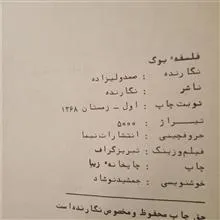 فلسفهٔ بوگ
نگارنده : صمدولیزاده
ناشر : نگارنده
نوبت چاپ : اول - زمستان ۱۳۶۸
تیراژ : ۵۰۰۰
حروفچینی : انتشارات نیما
فیلم‌وزینگ : تبریزگراف
چاپ : چاپخانهٔ زیبا
خوشنویسی : جمشیدنوشاد
حق چاپ محفوظ و مخصوص نگارنده است